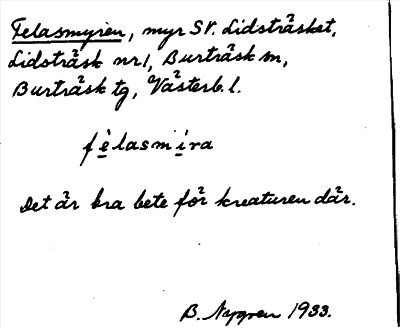 Felasmyren, myr SV. Lidsträsket,
Lidsträsk nr 1, Burträsk sn,
Burträsk tg, Västerb. l.
fè̱lasmi̱ra
Det är bra bete för kreaturen där.
B. Nygren 1933.